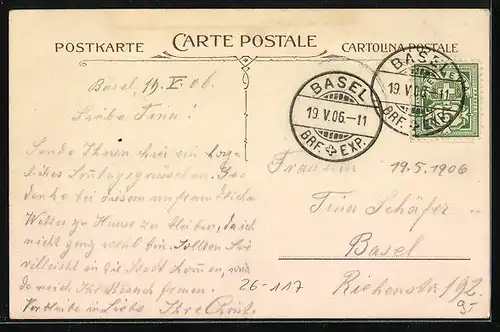 POSTKARTE CARTE POSTALE CARTOLINA POSTALE
BASEL
19.V.06.-11
BRF. EXP.
BASEL
19.V.06.-11
BRF. EXP.
Basel, 19.V.06.
Liebe Tina!
Sende Ihnen hier ein herz-
liches Sonntagsgrüsschen. Ge
denke bei diesem
Wetter zu Hause zu bleiben, da ich
nicht ganz wohl bin. Sollten Sie
vielleicht in die Stadt kommen, würd
de mich Ihr Besuch freuen.
Verbleibe in Liebe Ihre
Fräulein
19.5.1906
Tina Schäfer
Basel
Richenstr. 192
26-117
9-